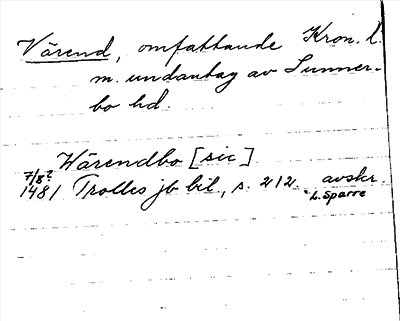 Värend, omfattande Kron. l.
m. undantag av Sunner-
bo hd.
Wärendbo [sic]
7/8?
1481 Trolles jb bil., s. 212 avskr.
L. Sparre